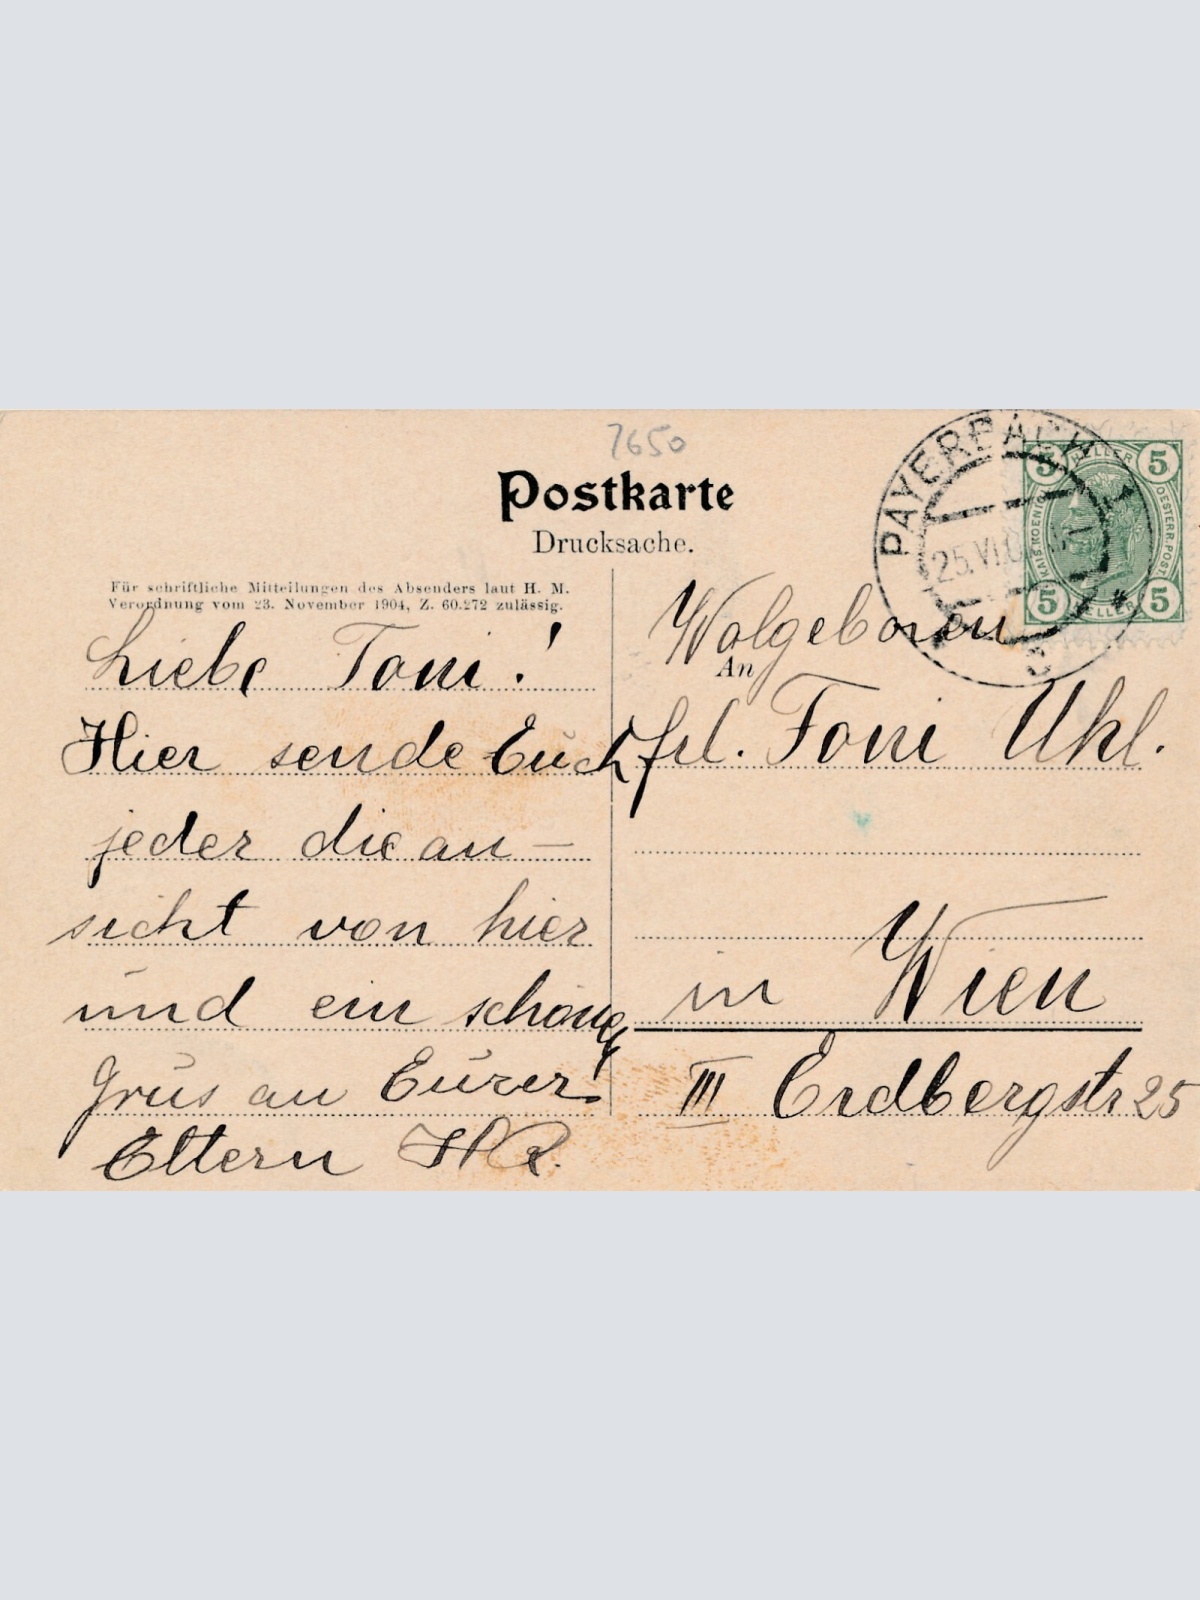 7650
Postkarte
Drucksache.
Für schriftliche Mitteilungen des Absenders laut H. M.
Verordnung vom 23. November 1904, Z. 60.272 zulässig.
Liebe Toni!
Hier sende Euch
jeder die an-
sicht von hier
und ein schöne
Grus an Eurer
Eltern
PAYERBACH 1
25.VI.0
5 HELLER 5
KAIS. KOENIG. OESTERR. POST
5 HELLER 5
Wolgeboren
An
frl. Toni Uhl.
in Wien
III Erdbergstr 25